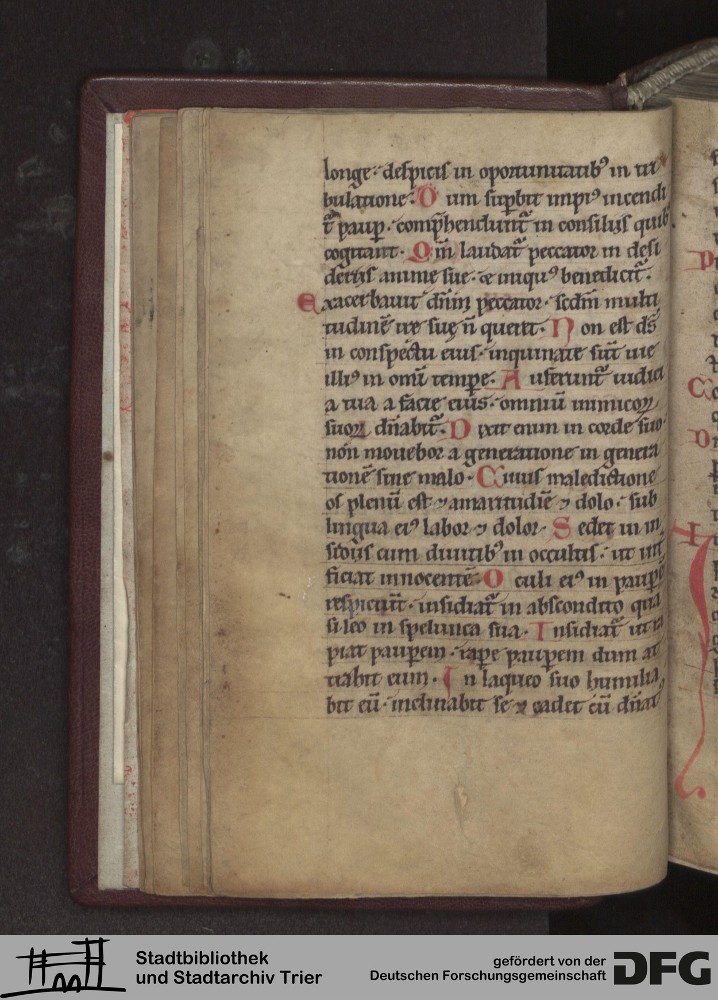 longe· despicis in oportunitatib⁹ in tri
bulatione· D um supbit impi⁹ incendi
t̃ paup̱· comp̃hendunt̃ in consiliis quib⁹
cogitant· Qm̄ laudat̃ peccator in desi
deriis anime sue· ⁊ iniqu⁹ benedicit̃·
Exacerbauit dñm peccator· scdm̄ multi
tudinē ire suę ñ queret· N on est ds̄
in conspectu eius· inquinate sūt uie
illi⁹ in omni tempre· A uferunt̃ iudici
a tua a facie eius· omniū inimicoꝝ
suoꝝ dñabit̃· D ixit enim in corde suo
non mouebor a generatione in genera
tionē sine malo· C uius maledictione
os plenū est ⁊ amaritudīe ⁊ dolo· sub
lingua ei⁹ labor ⁊ dolor· S edet in in
sidiis cum diuitib⁹ in occultis· ut int̃
ficiat innocentē· O culi ei⁹ in paupe
respiciūt· insidiat̃ in abscondito qua
si leo in spelunca sua· I nsidiat̃ ut ra
piat paupem· rape paupem dum at
trahit eum· I n laqueo suo humilia
bit eū· inclinabit se ⁊ cadet cū dñat̃
Stadtbibliothek
und Stadtarchiv Trier
gefördert von der
Deutschen Forschungsgemeinschaft
DFG